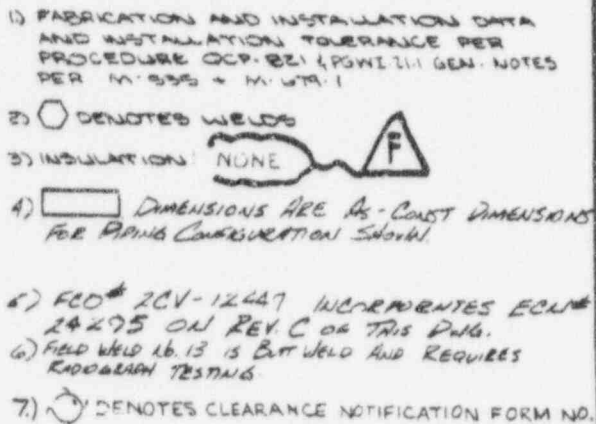 1) FABRICATION AND INSTALLATION DATA
AND INSTALLATION TOLERANCE PER
PROCEDURE QCP-221 & PGWI 21.1 GEN. NOTES
PER M-535 + M-679.1
2) DENOTES WELDS
3) INSULATION: NONE F
4) DIMENSIONS ARE AS-CONST DIMENSIONS
FOR PIPING CONFIGURATION SHOWN.
5) FCO# 2CV-12447 INCORPORATES ECN#
24295 ON REV. C OF THIS DWG.
6) FIELD WELD No. 13 IS BUTT WELD AND REQUIRES
RADOGRAPH TESTING
7.) DENOTES CLEARANCE NOTIFICATION FORM NO.